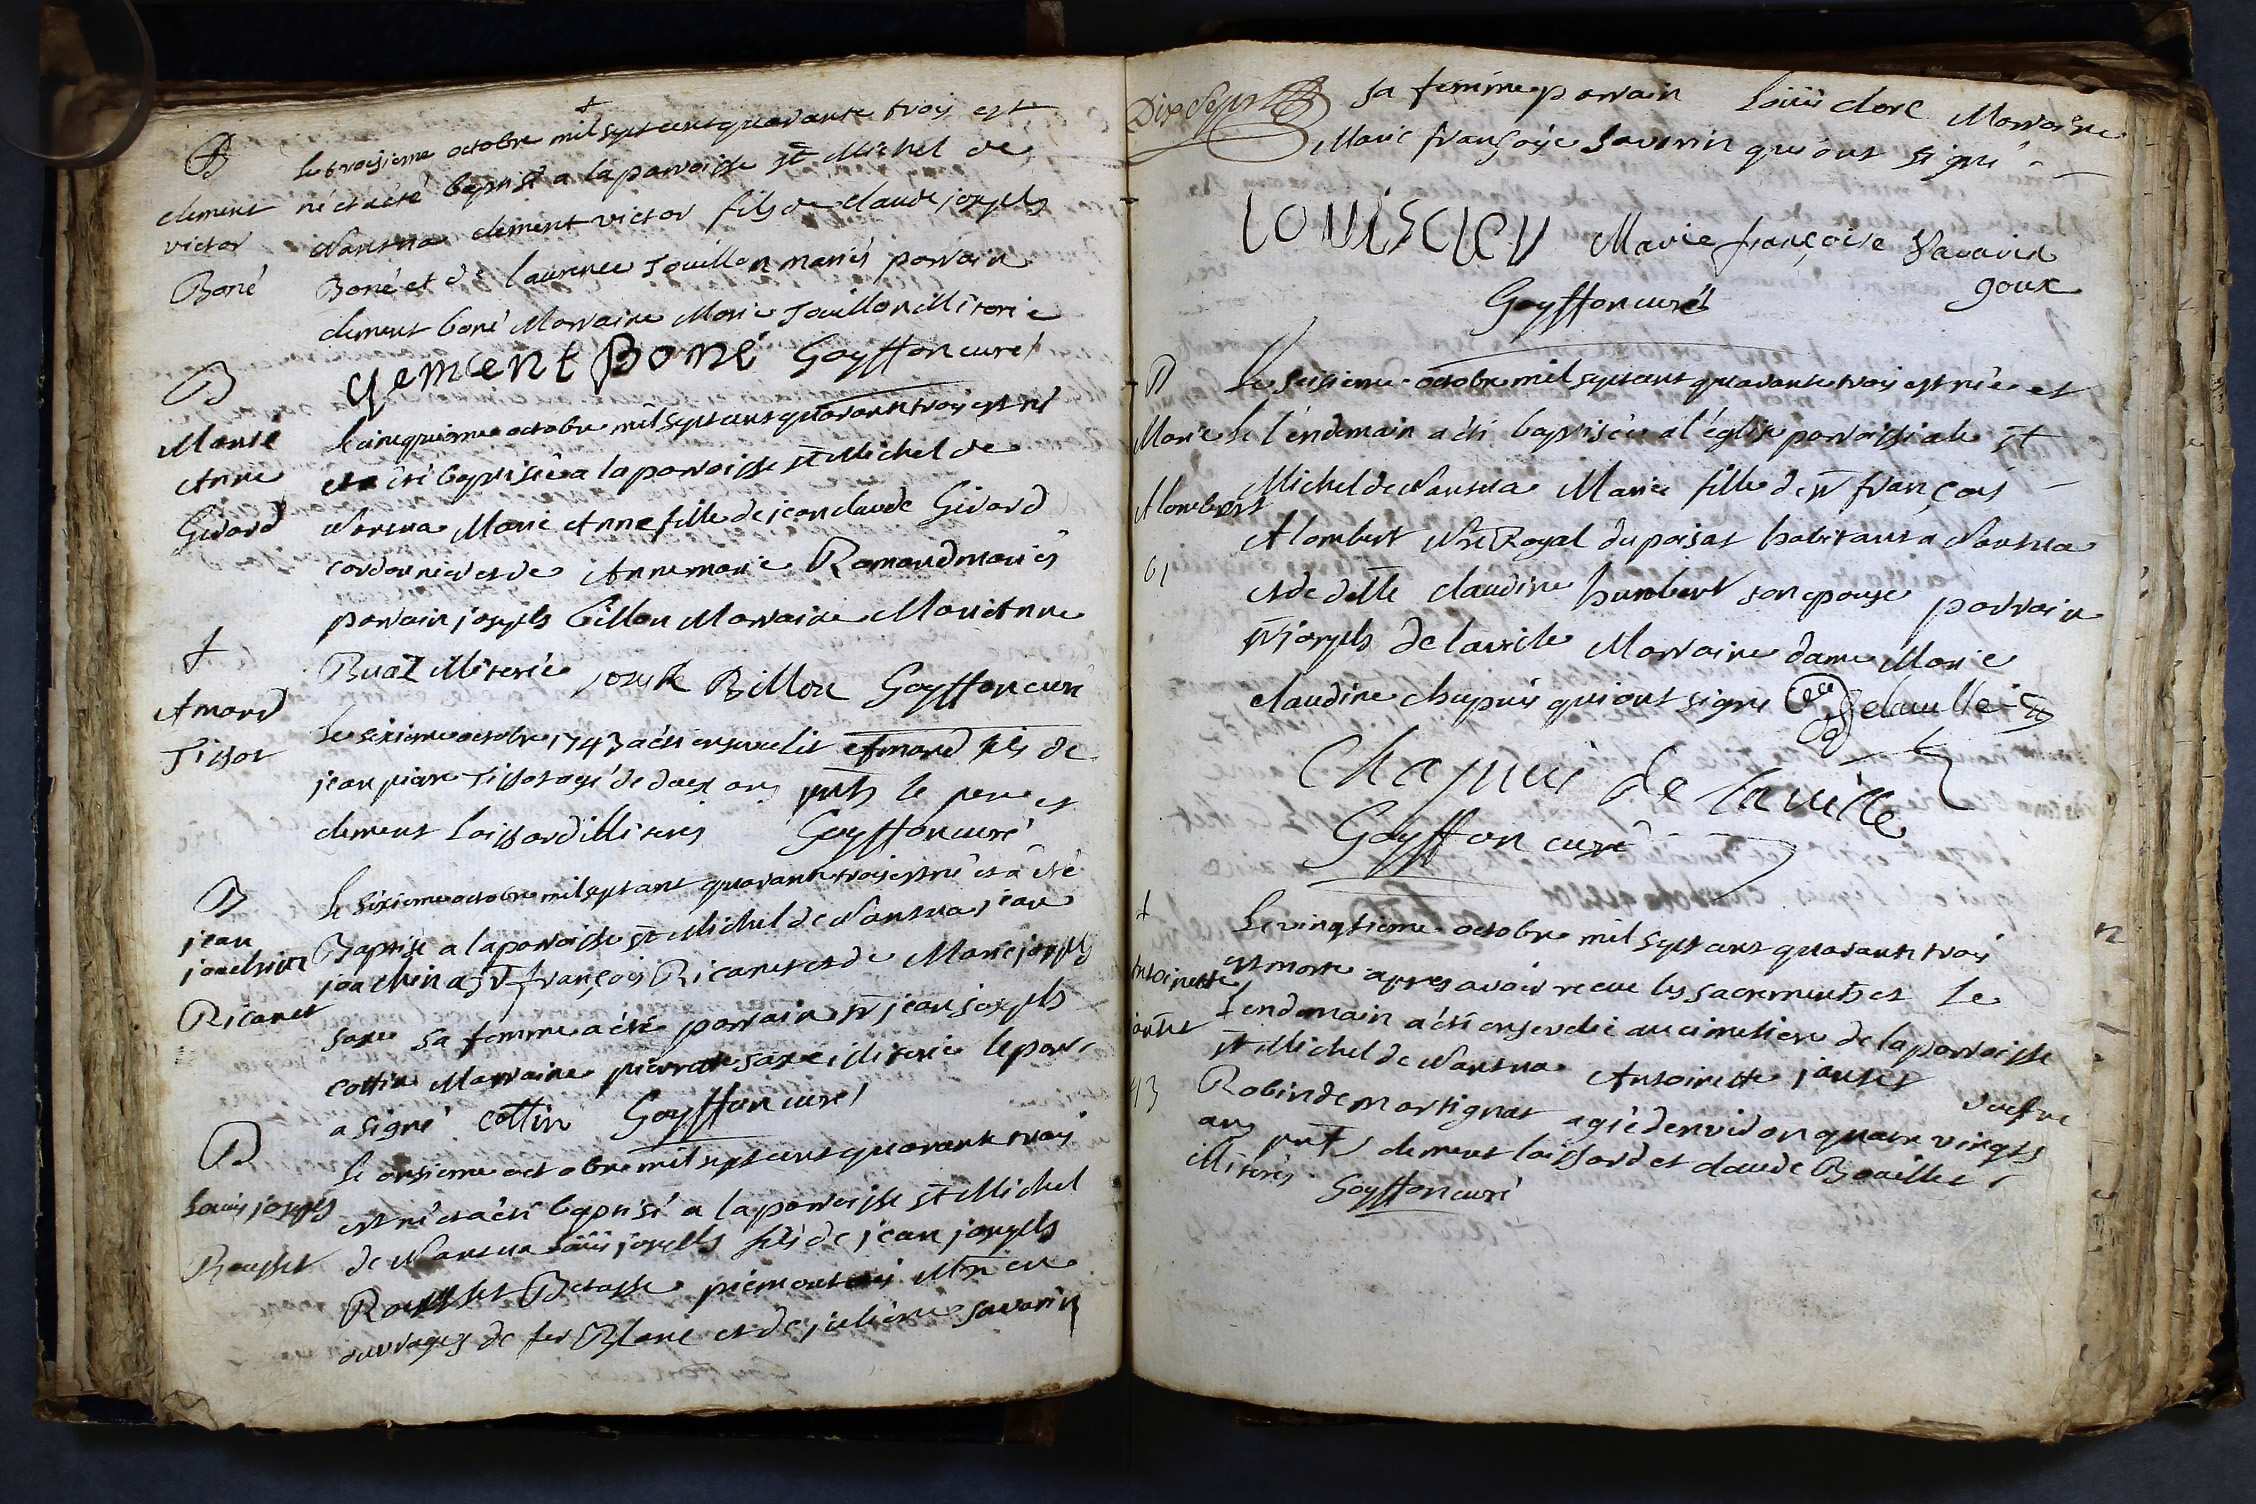 B
clement
victor
Boné
Le troisieme octobre mil sept cent quarante trois est
né et a été baptisé a la parroisse st Michel de
Nantua clement victor fils de claude joseph
Boné et de laurence Jouillon mariés parrain
clement boné Marraine Marie Jouillon illiterée
clement Boné Goyffon curé
B
Marie
Anne
Girard
le cinquieme octobre mil sept cent quarante trois est né
et a été baptisée a la parroisse st Michel de
Nantua Marie Anne fille de jean claude Girard
cordonnier et de Anne marie Ramand mariés
parrain joseph billon Marraine Marie Anne
Buat illiterée joseph Billon Goyffon curé
†
Amard
Tissot
Le sixieme octobre 1743 a été ensevelit Amard fils de
jean piere Tissot agé de deux ans pnts le pere et
clement loissard illiterés Goyffon curé
B
jean
joachim
Ricanet
le sixieme octobre mil sept cent quarante trois est né et a été
Baptisé a la parroisse st Michel de Nantua jean
joachin a sr françois Ricanet et de Marie joseph
saxe sa femme a été parrain sr jean joseph
cottin Marraine pierrette saxe illiterée le parr
a signé cottin Goyffon curé
B
Louis joseph
Rousset
le onsieme octobre mil sept cent quarante trois
est né et a été baptisé a la parroisse st Michel
de Nantua Loüis joseph fils de jean joseph
Rousset Betasse piemontois Mre en
ouvrages de fer Blanc et de juliene savarin
Dix sept
sa femme parrain Loüis clerc Marraine
Marie françoise Savarin qui ont signé
Louis cler Marie françoise Savarin
goux
Goyffon curé
B
Marie
Alombert
61
Le seisieme octobre mil sept cent quarante trois est née et
le l'endemain a été baptisée a l'église parroissiale st
Michel de Nantua Marie fille de sr françois
Alombert Nre Royal du poisat habitant a Nantua
et de delle claudine humbert son epouse parrain
sr joseph de lavile Marraine dame Marie
claudine chapuis qui ont signé delaville
Chapuis de laville
Goyffon curé
†
Antoinette
jantet
93
Le vingtieme octobre mil sept cent quarante trois
est morte apres avoir receue les sacrements et le
Lendemain a été ensevelie au cimetiere de la parroisse
st Michel de Nantua Antoinette jantet veufve
Robin de martignat agée d'environ quatre vingts
ans pnts clement loissard et claude Bouillet
illiterés Goyffon curé